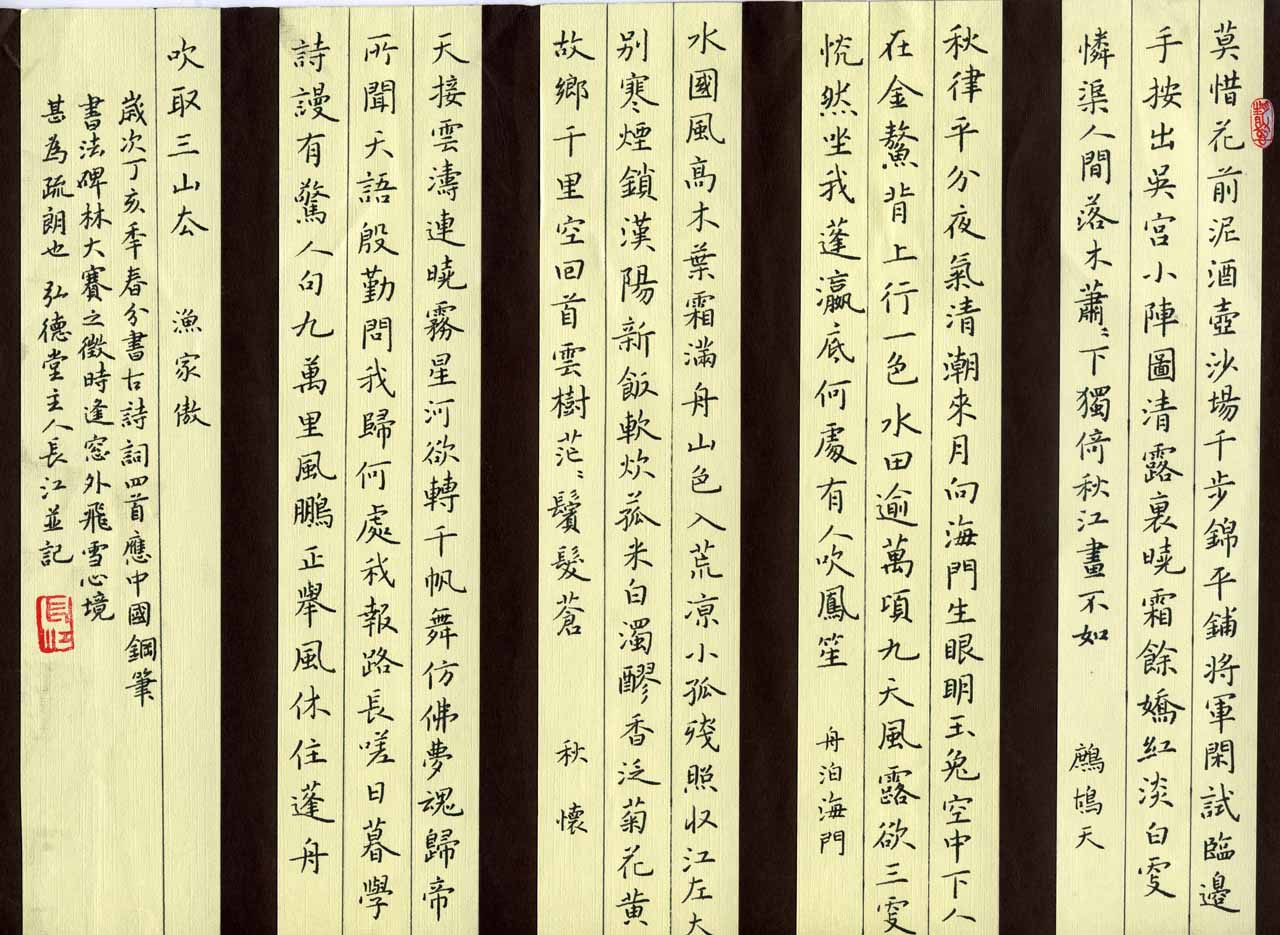 莫惜花前泥酒壺沙場千步錦平鋪將軍閑試臨邊
手按出吳宮小陣圖清露裏曉霜餘嬌紅淡白雯
憐渠人間落木蕭〻下獨倚秋江畫不如 鷓鴣天
秋律平分夜氣清潮來月向海門生眼明玉兔空中下人
在金鰲背上行一色水田逾萬頃九天風露欲三雯
恍然坐我蓬瀛底何處有人吹鳳笙 舟泊海門
水國風高木葉霜滿舟山色入荒涼小孤殘照收江左大
別寒煙鎖漢陽新飯軟炊菰米白濁醪香泛菊花黃
故鄉千里空回首雲樹茫〻鬢髮蒼 秋懷
天接雲濤連曉霧星河欲轉千帆舞仿佛夢魂歸帝
所聞天語殷勤問我歸何處我報路長嗟日暮學
詩謾有驚人句九萬里風鵬正舉風休住蓬舟
吹取三山去 漁家傲
歲次丁亥年春分書古詩詞四首應中國鋼筆
書法碑林大賽之徵時逢窓外飛雪心境
甚為疏朗也 弘德堂主人長江並記
長江